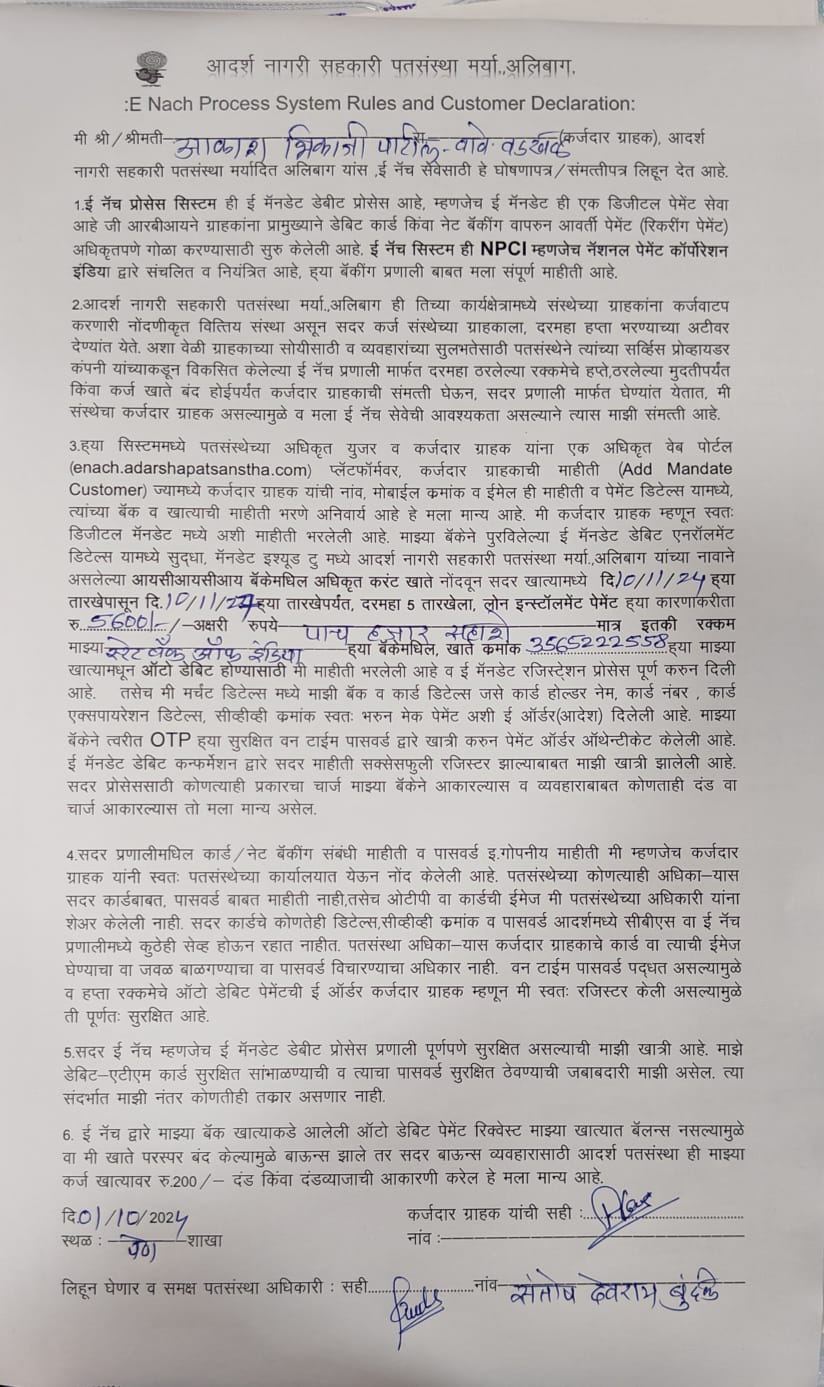 आदर्श नागरी सहकारी पतसंस्था मर्या.,अलिबाग.
:E Nach Process System Rules and Customer Declaration:
मी श्री/श्रीमती-आकाश भिकाजी पाटील-वावे वडखळ(कर्जदार ग्राहक), आदर्श
नागरी सहकारी पतसंस्था मर्यादित अलिबाग यांस ,ई नॅच सेवेसाठी हे घोषणापत्र/संमत्तीपत्र लिहून देत आहे.
1.ई नॅच प्रोसेस सिस्टम ही ई मॅनडेट डेबीट प्रोसेस आहे, म्हणजेच ई मॅनडेट ही एक डिजिटल पेमेंट सेवा
आहे जी आरबीआयने ग्राहकांना प्रामुख्याने डेबिट कार्ड किंवा नेट बॅकींग वापरुन आवर्ती पेमेंट (रिकरींग पेमेंट)
अधिकृतपणे गोळा करण्यासाठी सुरु केलेली आहे. ई नॅच सिस्टम ही NPCI म्हणजेच नॅशनल पेमेंट कॉर्पोरेशन
इंडिया द्वारे संचलित व नियंत्रित आहे, हया बॅकींग प्रणाली बाबत मला संपूर्ण माहीती आहे.
2.आदर्श नागरी सहकारी पतसंस्था मर्या.,अलिबाग ही तिच्या कार्यक्षेत्रामध्ये संस्थेच्या ग्राहकांना कर्जवाटप
करणारी नोंदणीकृत वित्तिय संस्था असून सदर कर्ज संस्थेच्या ग्राहकाला, दरमहा हप्ता भरण्याच्या अटीवर
देण्यांत येते. अशा वेळी ग्राहकाच्या सोयीसाठी व व्यवहारांच्या सुलभतेसाठी पतसंस्थेने त्यांच्या सर्व्हिस प्रोव्हायडर
कंपनी यांच्याकडून विकसित केलेल्या ई नॅच प्रणाली मार्फत दरमहा ठरलेल्या रक्कमेचे हप्ते,ठरलेल्या मुदतीपर्यंत
किंवा कर्ज खाते बंद होईपर्यंत कर्जदार ग्राहकाची संमत्ती घेऊन, सदर प्रणाली मार्फत घेण्यांत येतात, मी
संस्थेचा कर्जदार ग्राहक असल्यामुळे व मला ई नॅच सेवेची आवश्यकता असल्याने त्यास माझी संमत्ती आहे.
3.हया सिस्टममध्ये पतसंस्थेच्या अधिकृत युजर व कर्जदार ग्राहक यांना एक अधिकृत वेब पोर्टल
(enach.adarshapatsanstha.com) प्लॅटफॉर्मवर, कर्जदार ग्राहकाची माहीती (Add Mandate
Customer) ज्यामध्ये कर्जदार ग्राहक यांची नांव, मोबाईल क्रमांक व ईमेल ही माहीती व पेमेंट डिटेल्स यामध्ये,
त्यांच्या बॅक व खात्याची माहीती भरणे अनिवार्य आहे हे मला मान्य आहे. मी कर्जदार ग्राहक म्हणून स्वतः
डिजीटल मॅनडेट मध्ये अशी माहीती भरलेली आहे. माझ्या बॅकेने पुरविलेल्या ई मॅनडेट डेबिट एनरॉलमेंट
डिटेल्स यामध्ये सुद्धा, मॅनडेट इश्यूड टु मध्ये आदर्श नागरी सहकारी पतसंस्था मर्या.,अलिबाग यांच्या नावाने
असलेल्या आयसीआयसीआय बॅकेमधिल अधिकृत करंट खाते नोंदवून सदर खात्यामध्ये दि10/11/24हया
तारखेपासून दि.10/11/27हया तारखेपर्यंत, दरमहा 5 तारखेला, लोन इन्स्टॉलमेंट पेमेंट हया कारणाकरीता
रु.5600/-/-अक्षरी रुपये-पाच हजार सहाशे-मात्र इतकी रक्कम
माझ्यास्टेट बँक ऑफ इंडियाहया बॅकेमधिल, खाते क्रमांक 3565222558हया माझ्या
खात्यामधून ऑटो डेबिट होण्यासाठी मी माहीती भरलेली आहे व ई मॅनडेट रजिस्ट्रेशन प्रोसेस पूर्ण करुन दिली
आहे. तसेच मी मर्चंट डिटेल्स मध्ये माझी बॅक व कार्ड डिटेल्स जसे कार्ड होल्डर नेम, कार्ड नंबर , कार्ड
एक्सपायरेशन डिटेल्स, सीव्हीव्ही क्रमांक स्वतः भरुन मेक पेमेंट अशी ई ऑर्डर(आदेश) दिलेली आहे. माझ्या
बॅकेने त्वरीत OTP हया सुरक्षित वन टाईम पासवर्ड द्वारे खात्री करुन पेमेंट ऑर्डर ऑथेन्टीकेट केलेली आहे.
ई मॅनडेट डेबिट कन्फर्मेशन द्वारे सदर माहीती सक्सेसफुली रजिस्टर झाल्याबाबत माझी खात्री झालेली आहे.
सदर प्रोसेससाठी कोणत्याही प्रकारचा चार्ज माझ्या बॅकेने आकारल्यास व व्यवहाराबाबत कोणताही दंड वा
चार्ज आकारल्यास तो मला मान्य असेल.
4.सदर प्रणालीमधिल कार्ड/नेट बॅकींग संबंधी माहीती व पासवर्ड इ.गोपनीय माहीती मी म्हणजेच कर्जदार
ग्राहक यांनी स्वतः पतसंस्थेच्या कार्यालयात येऊन नोंद केलेली आहे. पतसंस्थेच्या कोणत्याही अधिका-यास
सदर कार्डबाबत, पासवर्ड बाबत माहीती नाही,तसेच ओटीपी वा कार्डची ईमेज मी पतसंस्थेच्या अधिकारी यांना
शेअर केलेली नाही. सदर कार्डचे कोणतेही डिटेल्स,सीव्हीव्ही क्रमांक व पासवर्ड आदर्शमध्ये सीबीएस वा ई नॅच
प्रणालीमध्ये कुठेही सेव्ह होऊन रहात नाहीत. पतसंस्था अधिका-यास कर्जदार ग्राहकाचे कार्ड वा त्याची ईमेज
घेण्याचा वा जवळ बाळगण्याचा वा पासवर्ड विचारण्याचा अधिकार नाही. वन टाईम पासवर्ड पद्धत असल्यामुळे
व हप्ता रक्कमेचे ऑटो डेबिट पेमेंटची ई ऑर्डर कर्जदार ग्राहक म्हणून मी स्वतः रजिस्टर केली असल्यामुळे
ती पूर्णतः सुरक्षित आहे.
5.सदर ई नॅच म्हणजेच ई मॅनडेट डेबीट प्रोसेस प्रणाली पूर्णपणे सुरक्षित असल्याची माझी खात्री आहे. माझे
डेबिट-एटीएम कार्ड सुरक्षित सांभाळण्याची व त्याचा पासवर्ड सुरक्षित ठेवण्याची जबाबदारी माझी असेल. त्या
संदर्भात माझी नंतर कोणतीही तक्रार असणार नाही.
6. ई नॅच द्वारे माझ्या बॅक खात्याकडे आलेली ऑटो डेबिट पेमेंट रिक्वेस्ट माझ्या खात्यात बॅलन्स नसल्यामुळे
वा मी खाते परस्पर बंद केल्यामुळे बाऊन्स झाले तर सदर बाऊन्स व्यवहारासाठी आदर्श पतसंस्था ही माझ्या
कर्ज खात्यावर रु.200/- दंड किंवा दंडव्याजाची आकारणी करेल हे मला मान्य आहे.
दि01/10/2024 कर्जदार ग्राहक यांची सही :
स्थळ : -पेण-शाखा नांव :
लिहून घेणार व समक्ष पतसंस्था अधिकारी : सही नांव-संतोष देवराम